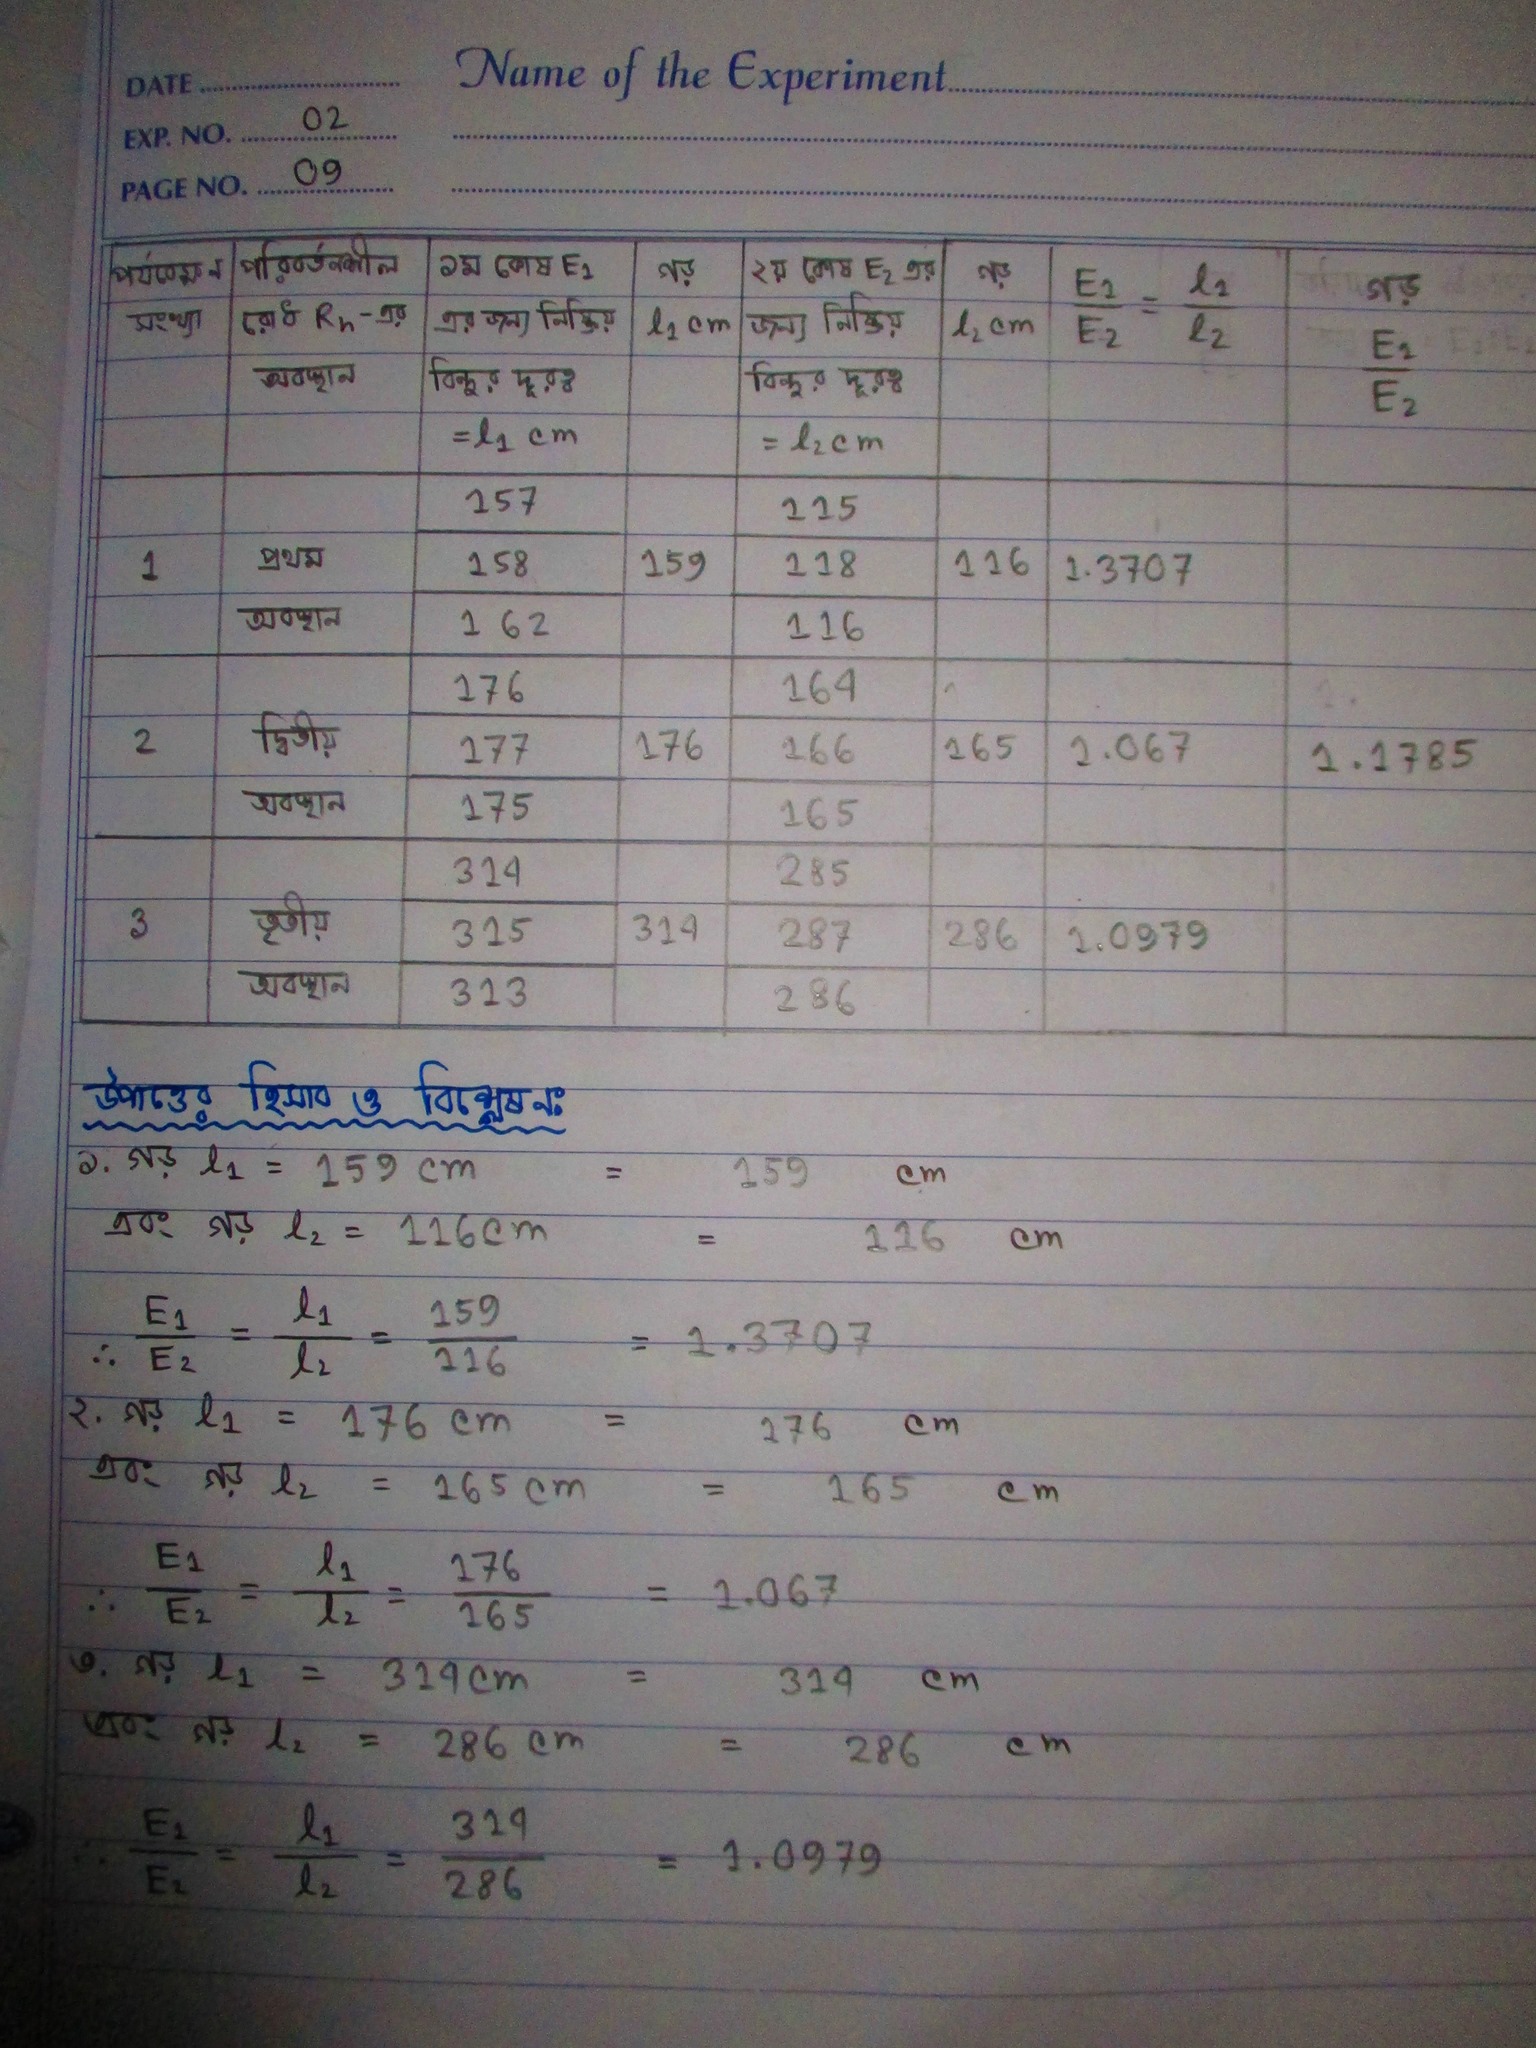 DATE
Name of the Experiment
EXP. NO. 02
PAGE NO. 09
পর্যবেক্ষন সংখ্যা
পরিবর্তনশীল রোধ Rh-এর অবস্থান
১ম কোষ E1 এর জন্য নিষ্ক্রিয় বিন্দুর দূরত্ব =l1 cm
গড় l1 cm
২য় কোষ E2 এর জন্য নিষ্ক্রিয় বিন্দুর দূরত্ব = l2 cm
গড় l2 cm
E1/E2 = l1/l2
গড় E1/E2
157 115
1 প্রথম 158 159 118 116 1.3707
অবস্থান 162 116
176 164
2 দ্বিতীয় 177 176 166 165 1.067 1.1785
অবস্থান 175 165
314 285
3 তৃতীয় 315 314 287 286 1.0979
অবস্থান 313 286
উপাত্তের হিসাব ও বিশ্লেষনঃ
১. গড় l1 = 159 cm = 159 cm
এবং গড় l2 = 116cm = 116 cm
∴ E1/E2 = l1/l2 = 159/116 = 1.3707
২. গড় l1 = 176 cm = 176 cm
এবং গড় l2 = 165 cm = 165 cm
∴ E1/E2 = l1/l2 = 176/165 = 1.067
৩. গড় l1 = 314cm = 314 cm
এবং গড় l2 = 286 cm = 286 cm
∴ E1/E2 = l1/l2 = 314/286 = 1.0979